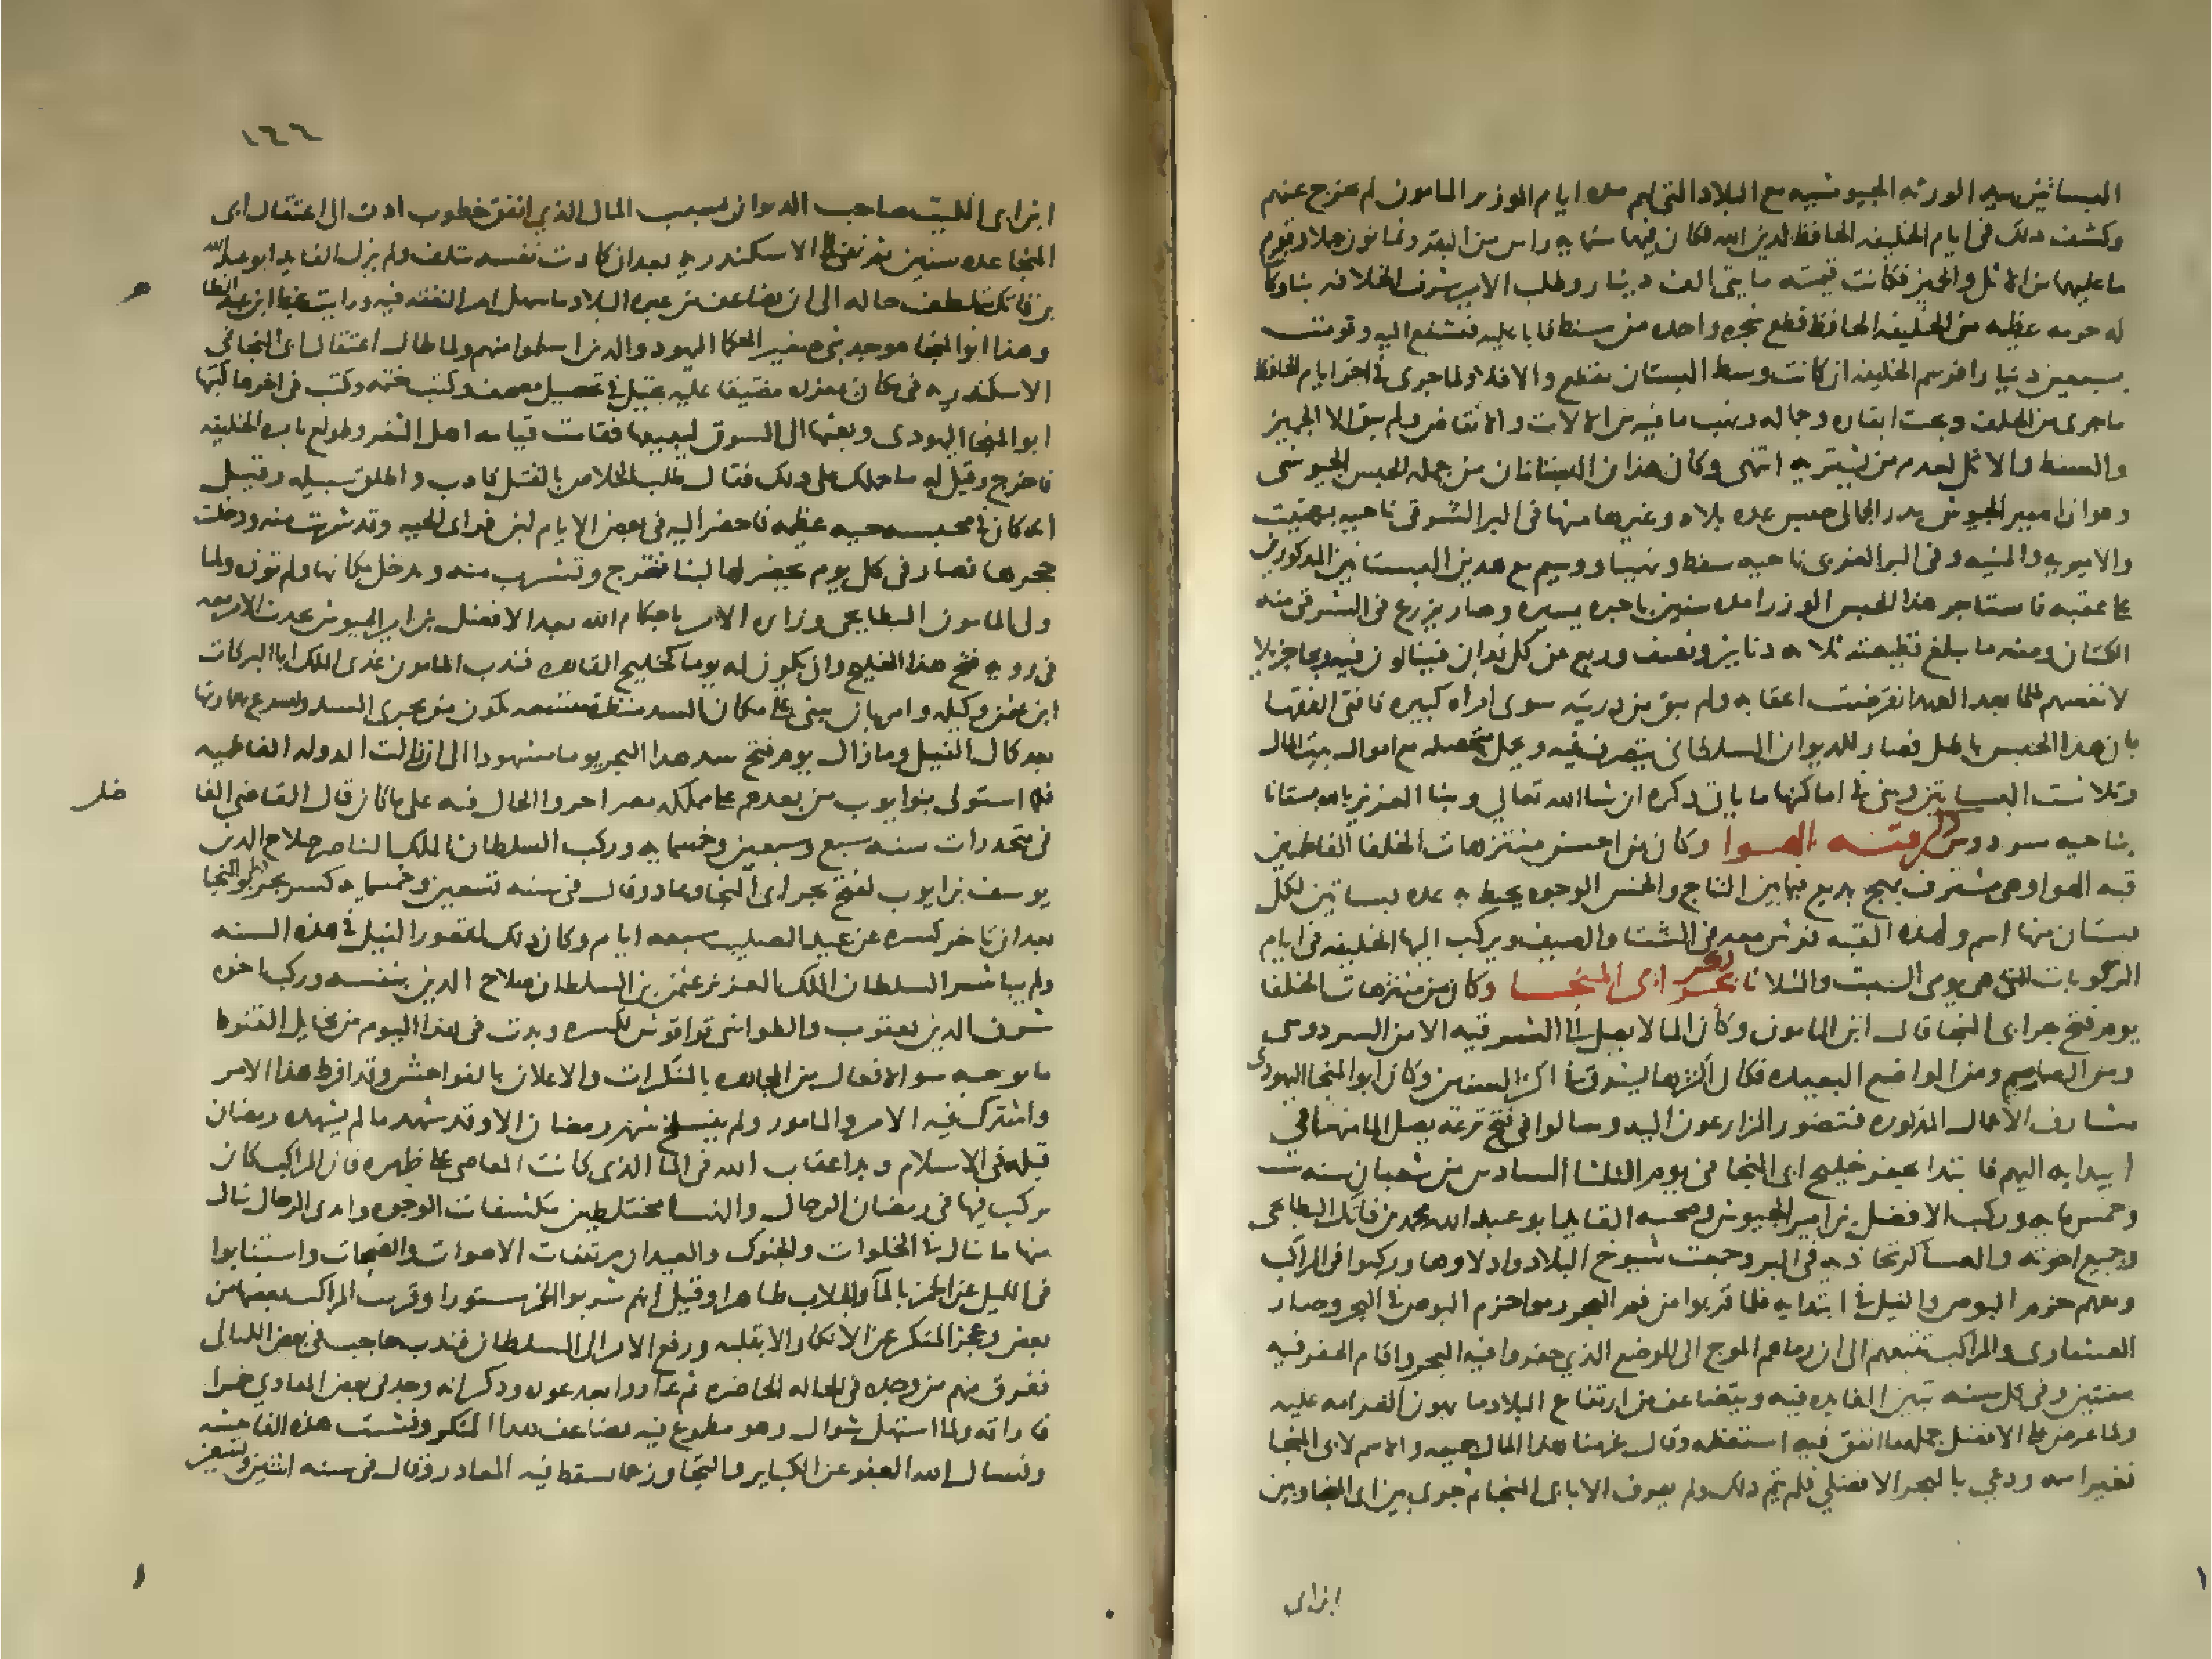 البساتين بيد الورثه الجيوشيه مع البلاد التي لهم مده ايام الوزير المامون لم تخرج عنهم
وكشف ذلك في ايام الخليفه الحافظ لدين الله فكان فيها ستمايه راس من البقر وثمانون جملا وقوم
ما عليهما من الاثل والجميز فكانت قيمته مايتي الف دينار وطلب الامير شرف الخلافه
له حرمه عظيمه من الخليفه الحافظ قطع شجره واحده من سنط فابا عليه فتشفع اليه وقومت
بسبعين دينارا فرسم الخليفه ان كانت وسط البستان تقطع والا فلا ولما جرى في اخر ايام الحافظ
ما جرى من الخلف ذبحت ابقاره وجماله ونهب ما فيه من الالات والانقاض ولم يبق الا الجميز
والسنط والاثل لعدم من يشتريه انتهى وكان هذان البستانان من جمله الحبس الجيوشي
وهو ان امير الجيوش بدر الجمالي حبس عده بلاد وغيرها منها في البر الشرقي ناحيه بهتيت
والاميريه والمنيه وفي البر الغربي ناحيه سفط ونهيا ووسيم مع هذين البستانين المذكورين
على عقبه فاستاجر هذا الحبس الوزرا مده سنين باجره يسيره وصار يزرع في الشرقي منه
الكتان ومنه ما بلغ قطيعته ثلاثه دنانير ونصف وربع عن كل فدان فينالون فيه ربحا جزيلا
لانفسهم فلما بعد العهد انقرضت اعقابه ولم يبق من ذريته سوى امراه كبيره فافتى الفقها
بان هذا الحبس باطل فصار للديوان السلطاني يتصرف فيه ويحمل متحصله مع اموال بيت المال
وتلاشت البساتين وبنى في اماكنها ما ياتي ذكره ان شا الله تعالى وبنا العزيز بالله بستانا
بناحيه سردوس ذكر قبه الهوا وكان من احسن منتزهات الخلفا الفاطميين
قبه الهوا وهي مستشرف بهج بديع فيما بين التاج والخمس الوجوه يحيط به عده بساتين لكل
بستان منها اسم ولهذه القبه فرش معده في الشتا والصيف ويركب اليها الخليفه في ايام
الركوبات التي هي يومي السبت والثلاثا بحر ابي المنجا وكان من منتزهات الخلفا
يوم فتح بحر ابي المنجا قال ابن المامون وكان الما لا يصل الى الشرقيه الا من السردوسي
ومن الصماصم ومن المواضع البعيده فكان اكثرها يشرق في اكثر السنين وكان ابو المنجا اليهودي
مشارف الاعمال المذكوره فتضور المزارعون اليه وسالوا في فتح ترعه يصل الما منها في
ابتدايه اليهم فابتدا بحفر خليج ابي المنجا في يوم الثلثا السادس من شعبان سنه ست
وخمسمايه وركب الافضل بن امير الجيوش وصحبه القايد ابو عبد الله محمد بن فاتك البطايحي
وجميع اخوته والعساكر تحاذيه في البر وجمعت شيوخ البلاد واولادها وركبوا في المراكب
ومعهم حزم البوص والنيل في ابتدايه فلما قربوا من فم البحر رموا حزم البوص في البحر وصار
العشاري والمراكب تتبعهم الى ان رماهم الموج الى الموضع الذي حفروا فيه البحر واقام الحفر فيه
سنتين وفي كل سنه تبين الفايده فيه ويتضاعف من ارتفاع البلاد ما يهون الغرامه عليه
ولما عرض على الافضل جمله ما انفق فيه استعظمه وقال غرمنا هذا المال جميعه والاسم لابي المنجا
فغير اسمه ودعي بالبحر الافضلي فلم يتم ذلك ولم يعرف الا بابي المنجا ثم جرى بين ابي المنجا وبين
ابن ابي
١٤٦
ابن ابي الليث صاحب الديوان بسبب المال الذي انفق خطوب ادت الى اعتقال ابي
المنجا عده سنين ثم نفي الى الاسكندريه بعد ان كادت نفسه تتلف ولم يزل القايد ابو عبد الله
بن فاتك يتلطف حاله الى ان تضاعف من عبره البلاد ما سهل امر النفقه فيه ورايت بخط ابن عبد الظاهر
وهذا ابو المنجا هو جد بني صفير الحكما اليهود والذين اسلموا منهم ولما طال اعتقال ابي المنجا في
الاسكندريه في مكان بمفرده مضيقا عليه تحيل في تحصيل مصحف وكتب ختمه وكتب في اخرها كتبها
ابو المنجا اليهودي وبعثها الى السوق ليبيعها فقامت قيامه اهل الثغر وطولع بامره الخليفه
فاخرج وقيل له ما حملك على ذلك فقال طلب الخلاص بالقتل فادب واطلق سبيله وقيل
انه كان في محبسه حيه عظيمه فاحضر اليه في بعض الايام لبن فراى الحيه وقد شربت منه ودخلت
جحرها فصار في كل يوم يحضر لها لبنا فتخرج وتشرب منه وتدخل مكانها ولم توذه ولما
ولي المامون البطايحي وزاره الامر باحكام الله بعد الافضل بن امير الجيوش تحدث الامر معه
في رويه فتح هذا الخليج وان يكون له يوما كخليج القاهره فندب المامون عدي الملك ابا البركات
ابن عثمن وكيله وامره بان يبني على مكان السد منظره متسعه تكون من بحري السد ولشرع في عمارتها
بعد كمال النيل وما زال يوم فتح سد هذا البحر يوما مشهودا الى ان زالت الدوله الفاطميه
فلما استولى بنو ايوب من بعدهم على مملكه مصر اجروا الحال فيه على ما كان قال القاضي الفا
ضل
في متجددات سنه سبع وسبعين وخمسمايه وركب السلطان الملك الناصر صلاح الدين
يوسف بن ايوب لفتح بحر ابي المنجا وعاد وقال في سنه تسعين وخمسمايه كسر بحر ابو المنجا
بعد ان تاخر كسره عن عيد الصليب سبعه ايام وكان ذلك لقصور النيل في هذه السنه
ولم يباشر السلطان الملك العزيز عثمن بن السلطان صلاح الدين بنفسه وركب اخوه
شرف الدين يعقوب والطواشي قراقوش لكسره وبدت في هذا اليوم من مخايل القنوط
ما يوجبه سو الافعال من المجاهره بالمنكرات والاعلان بالفواحش وقد افرط هذا الامر
واشترك فيه الامر والمامور ولم ينسلخ شهر رمضان الا وقد شهد ما لم يشهده رمضان
قبله في الاسلام وبدا عقاب الله في الما الذي كانت المعاصي على ظهره فان المراكب كان
يركب فيها في رمضان الرجال والنسا مختلطين مكشفات الوجوه وايدي الرجال تنال
منها ما تنال في الخلوات والجنوك والعيدان مرتفعات الاصوات والضجات واستنابوا
في الليل عن الخمر بالما والجلاب ظاهرا وقيل انهم شربوا الخمر مستورا وقربت المراكب بعضها من
بعض وعجز المنكر عن الانكار الا بقلبه ورفع الامر الى السلطان فندب حاجبه في بعض الليالي
ففرق منهم من وجده في الحاله الحاضره ثم عادوا بعد عوده وذكر انه وجد في بعض المعادي خمرا
فاراقه ولما استهل شوال وهو مطموع فيه تضاعف هذا المنكر وفشت هذه الفاحشه
ونسال الله العفو عن الكباير والتجاوز عما سقط فيه المعاذر وقال في سنه اثنتين وتسعين